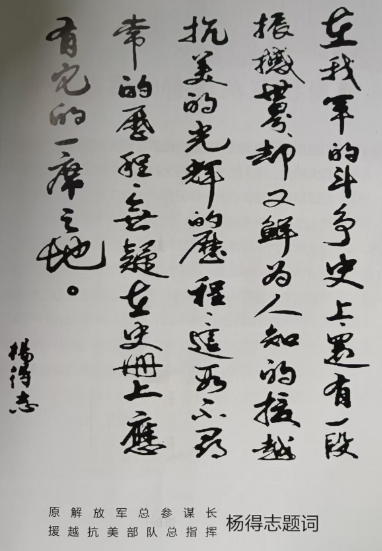 在我军的斗争史上,还有一段
振撼世界,却又鲜为人知的援越
抗美的光辉的歷程,這段不尋
常的歷程,無疑在史册上應
有它的一席之地。
楊得志
原解放军总参谋长
援越抗美部队总指挥 杨得志题词